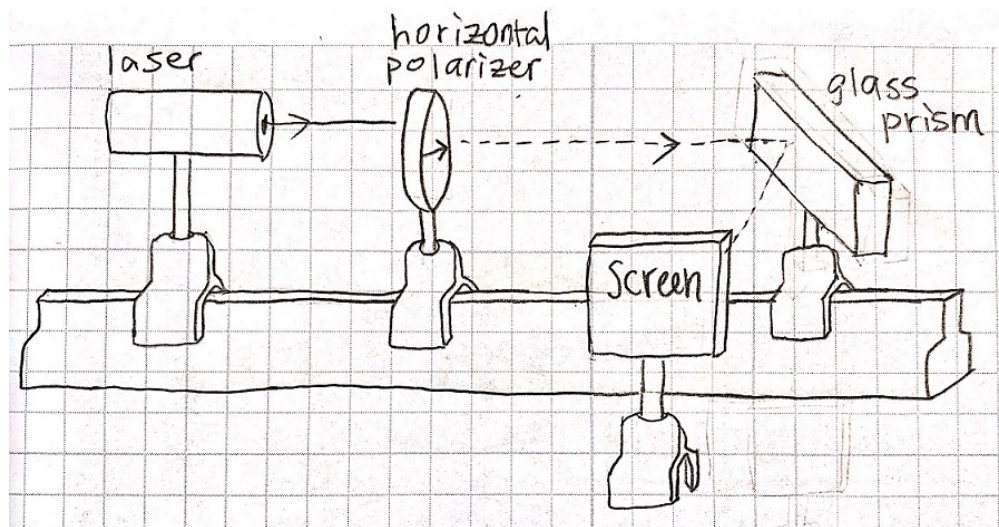 laser
horizontal
polarizer
glass
prism
screen